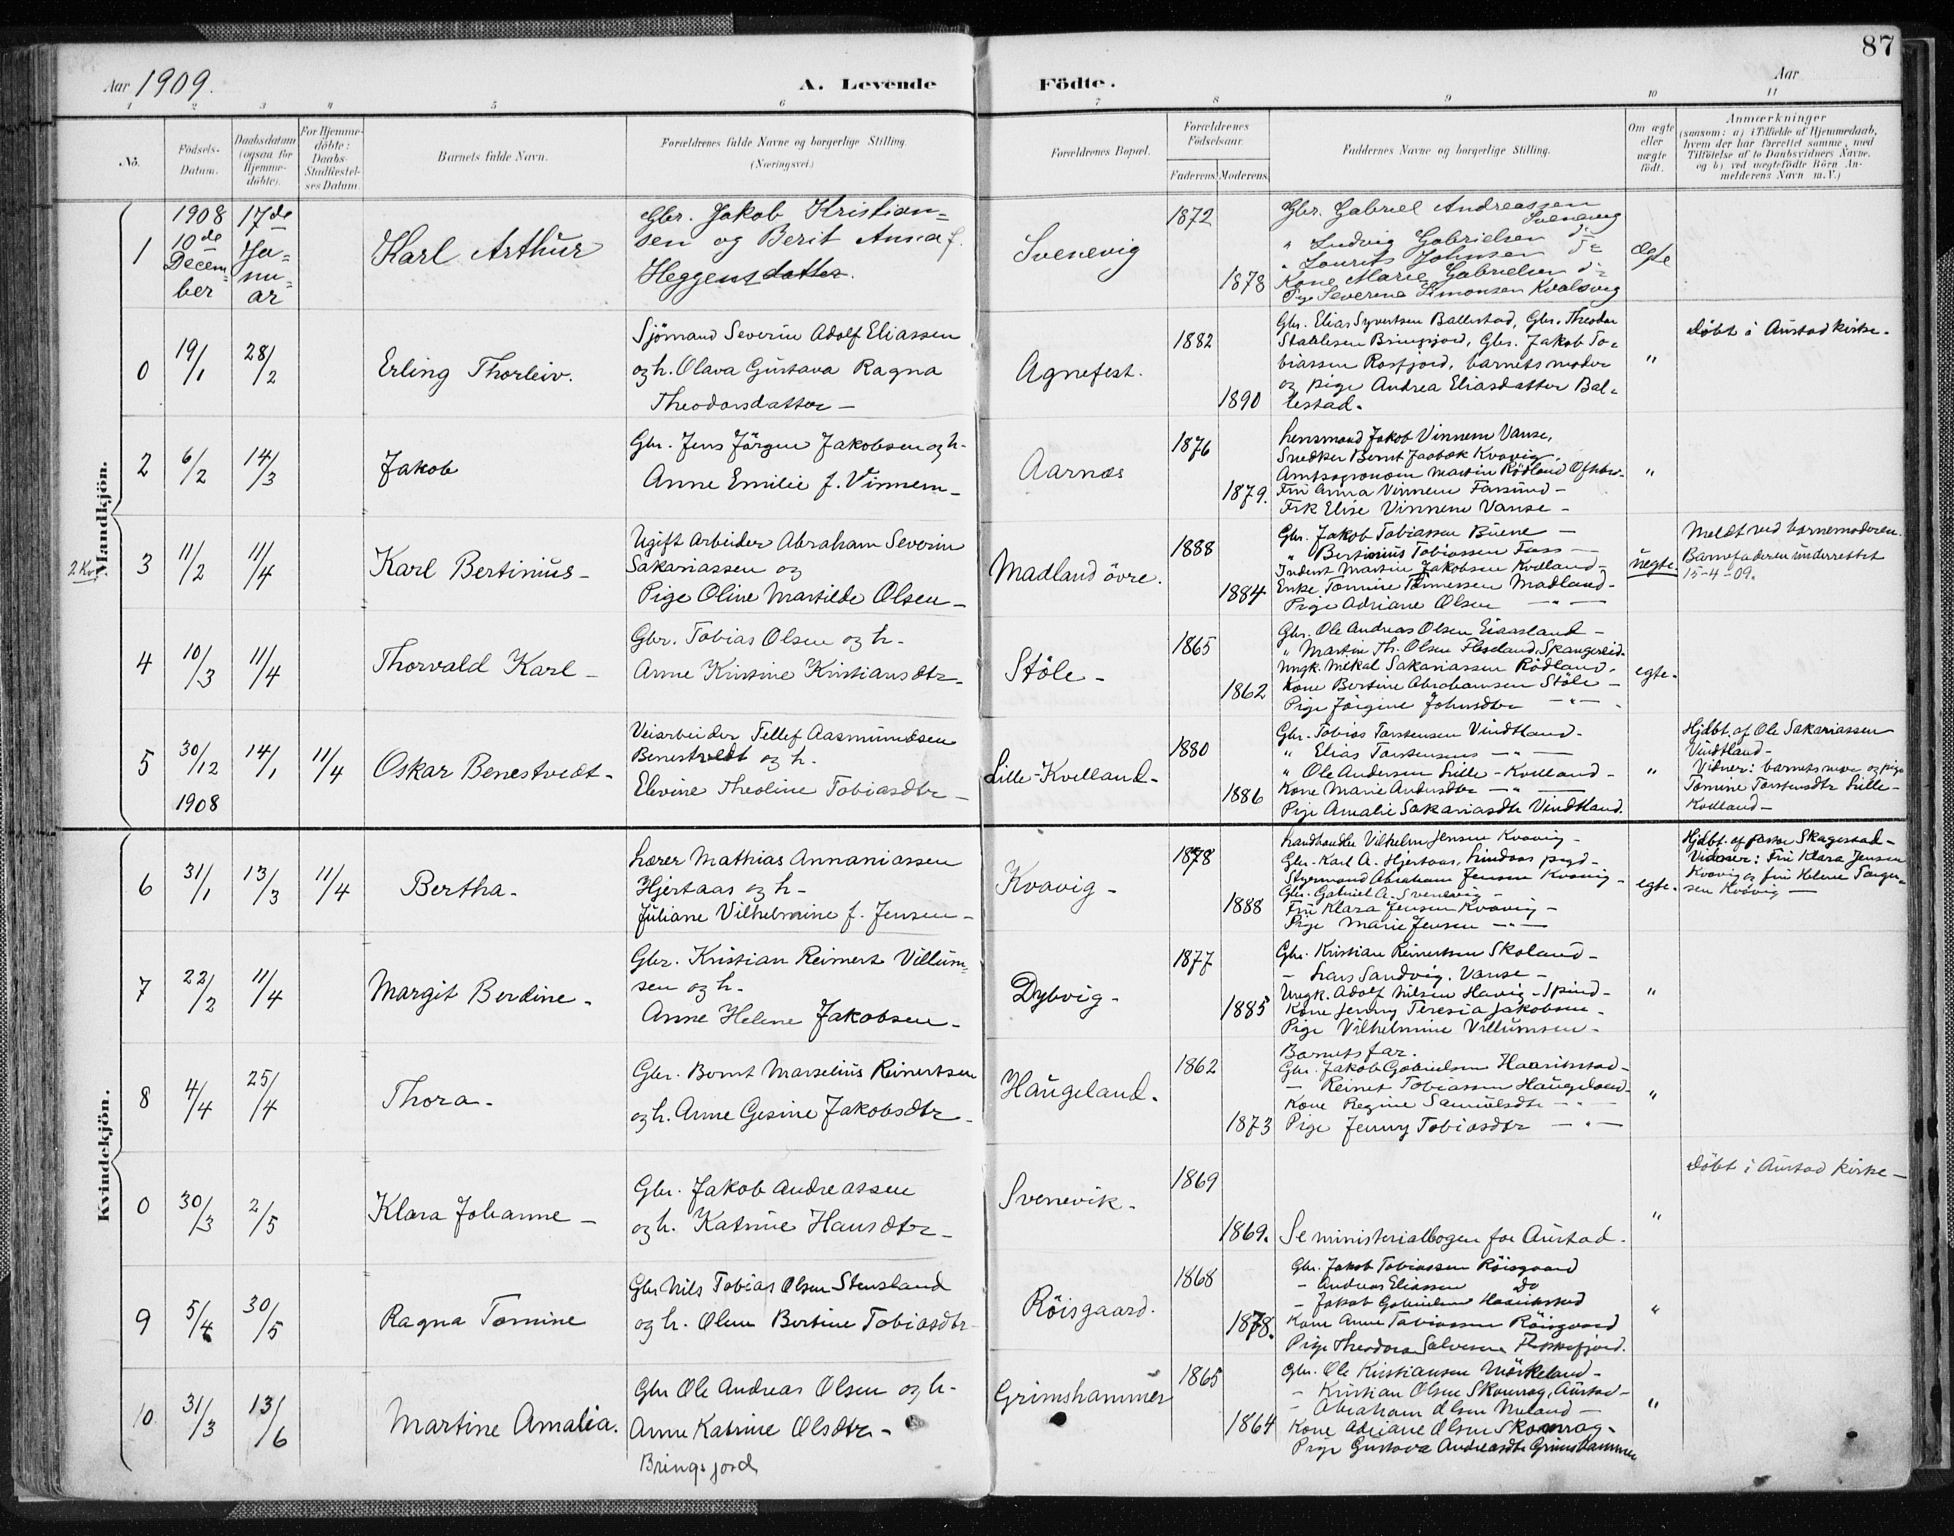 87
Aar 1909.
A. Levende Födte.
Aar
1 2 3 4 5 6 7 8 9 10 11
No.
Födsels-
Datum.
Daabsdatum
(ogsaa for
Hjemme-
döbte).
For Hjemme-
döbte:
Daabs-
Stadfæstel-
ses Datum.
Barnets fulde Navn.
Forældrenes fulde Navne og borgerlige Stilling.
(Næringsvei.)
Forældrenes Bopæl.
Forældrenes
Födselsaar.
Faderens. Moderens.
Faddernes Navne og borgerlige Stilling.
Om ægte
eller
uægte
født.
Anmærkninger
(saasom: a) i Tilfælde af Hjemmedaab,
hvem der har forrettet samme, med
Tilføielse af to Daabsvidners Navne,
og b) ved uægtefödte Börn An-
melderens Navn m. V.)
Mandkjön.
2 Kv.
1
1908
10de
Decem-
ber
17de
Ja-
nu-
ar
Karl Arthur
Gbr. Jakob Kristian-
sen og Berit Anna f.
Heggentdatter.
Svenevig
1872
1878
Gbr. Gabriel Andreassen
Svenevig
" Ludvig Gabrielsen do
" Laurits Johnsen do
Kone Marie Gabrielsen do
Pige Severine Simonsen Kvalsvig
ægte
0
19/1
28/2
Erling Thorleiv.
Sjömand Severin Adolf Eliassen
og h. Olava Gustava Ragna
Theodorsdatter –
Agnefest.
1882
1890
Gbr. Elias Syvertsen Ballestad, Gbr. Theodor
Staalesen Bringsjord, Gbr. Jakob To-
biassen Rosfjord, barnets moder
og pige Andrea Eliasdatter Bal-
lestad.
"
Döbt i Austad kirke.
2
6/2
14/3
Jakob
Gbr. Jens Jörgen Jakobsen og h.
Anne Emilie f. Vinnem –
Aarnæs
1876
1879.
Lensmand Jakob Vinnem Vanse,
Snedker Bernt Kvavig,
Amtsagronom Martin Rödland
Fru Anna Vinnem Farsund –
Frk Elise Vinnem Vanse –
"
3
11/2
11/4
Karl Bertinius –
Ugift Arbeider Abraham Severin
Sakariassen og
Pige Oline Martilde Olsen –
Madland övre.
1888
1884
Gbr. Jakob Tobiassen Büene –
" Bertinius Tobiassen Fass –
Inderst Martin Jakobsen Kvelland –
Enke Tomine Tönnessen Madland –
Pige Adriane Olsen – " –
uegte.
Meldt ved barnemoderen.
Barnefaderen underrettet
15-4-09.
4
10/3
11/4
Thorvald Karl –
Gbr. Tobias Olsen og h.
Anne Kristine Kristiansdtr –
Stöle –
1865
1862
Gbr. Ole Andreas Olsen Eiaasland –
" Martin Th. Olsen Spangereid.
Ungk. Mekal Sakariassen Rödland.
Kone Bertine Abrahamsen Stöle –
Pige Jörgine Johnsdtr – " – .
egte.
5
30/12
1908
14/1
11/4
Oskar Benestvedt –
Veiarbeider Tellef Aasmundsen
Benestvedt og h.
Elevine Theoline Tobiasdtr –
Lille-Kvelland –
1880
1886
Gbr. Tobias Torstensen Vindtland –
" Elias Torstensen – " –
" Ole Andersen Lille-Kvelland –
Kone Marie Andersdtr – " –
Pige Amalie Sakariasdtr Vindtland.
"
Hjdbt. af Ole Sakariassen
Vindtland –
Vidner: barnets mor og pige
Tomine Torstensdtr Lille-
Kvelland –
Kvindekjön.
6
31/1
13/3
11/4
Bertha –
Lærer Mathias Annaniassen
Hjertaas og h.
Juliane Vilhelmine f. Jensen –
Kvavig –
1878
1888
Landhandler Vilhelm Jensen Kvavig –
Gbr. Karl A. Hjertaas, Lindaas pgd –
Styrmand Abraham Jensen Kvavig –
Gbr. Gabriel A. Svenevig –
Fru Klara Jensen Kvavig –
Pige Marie Jensen – " –
egte.
Hjdbt. af Skagestad –
Vidner: Fru Klara Jensen
Kvavig og fru Helene Torger-
sen Kvavig –
7
22/2
11/4
Margit Berdine –
Gbr. Kristian Reimert Villum-
sen og h.
Anne Helene Jakobsen –
Dybvig –
1877
1885
Gbr. Kristian Reinertsen Skoland –
– Lars Sandvig, Vanse –
Ungk. Adolf Nilsen Havig – Spind –
Kone Jenny Teresia Jakobsen –
Pige Vilhelmine Villumsen –
"
8
4/4
25/4
Thora –
Gbr. Bernt Marselius Reinertsen
og h. Anne Gesine Jakobsdtr –
Haugeland.
1862
1873
Barnets far.
Gbr. Jakob Gabrielsen Haarikstad –
– Reinert Tobiassen Haugeland –
Kone Regine Samuelsdtr – " –
Pige Jenny Tobiasdtr – " –
"
0
30/3
2/5
Klara Johanne –
Gbr. Jakob Andreassen
og h. Katrine Hansdtr –
Svenevik.
1869
1869.
Se ministerialbogen for Austad.
"
Döbt i Austad kirke –
9
5/4
30/5
Ragna Tomine
Gbr Nils Tobias Olsen Stensland
og h. Oline Bertine Tobiasdtr
Röisgaard.
1868
1878.
Gbr. Jakob Tobiassen Röisgaard
– Andreas Eliassen Do
– Jakob Gabrielsen Haarikstad
Kone Anne Tobiassen Röisgaard
Pige Theodora Salvesen Flekkefjord.
"
10.
31/3
13/6
Martine Amalia.
Gbr Ole Andreas Olsen og h.
Anne Katrine Olsdtr –
Bringsjord
Grimshammer
1865
1864
Gbr. Ole Kristiansen Mörkeland –
– Kristian Olsen Skomrag, Austad –
– Abraham Olsen –
Kone Adriane Olsen Skomrag –
Pige Gustava Andreasdtr Grimshammer
"